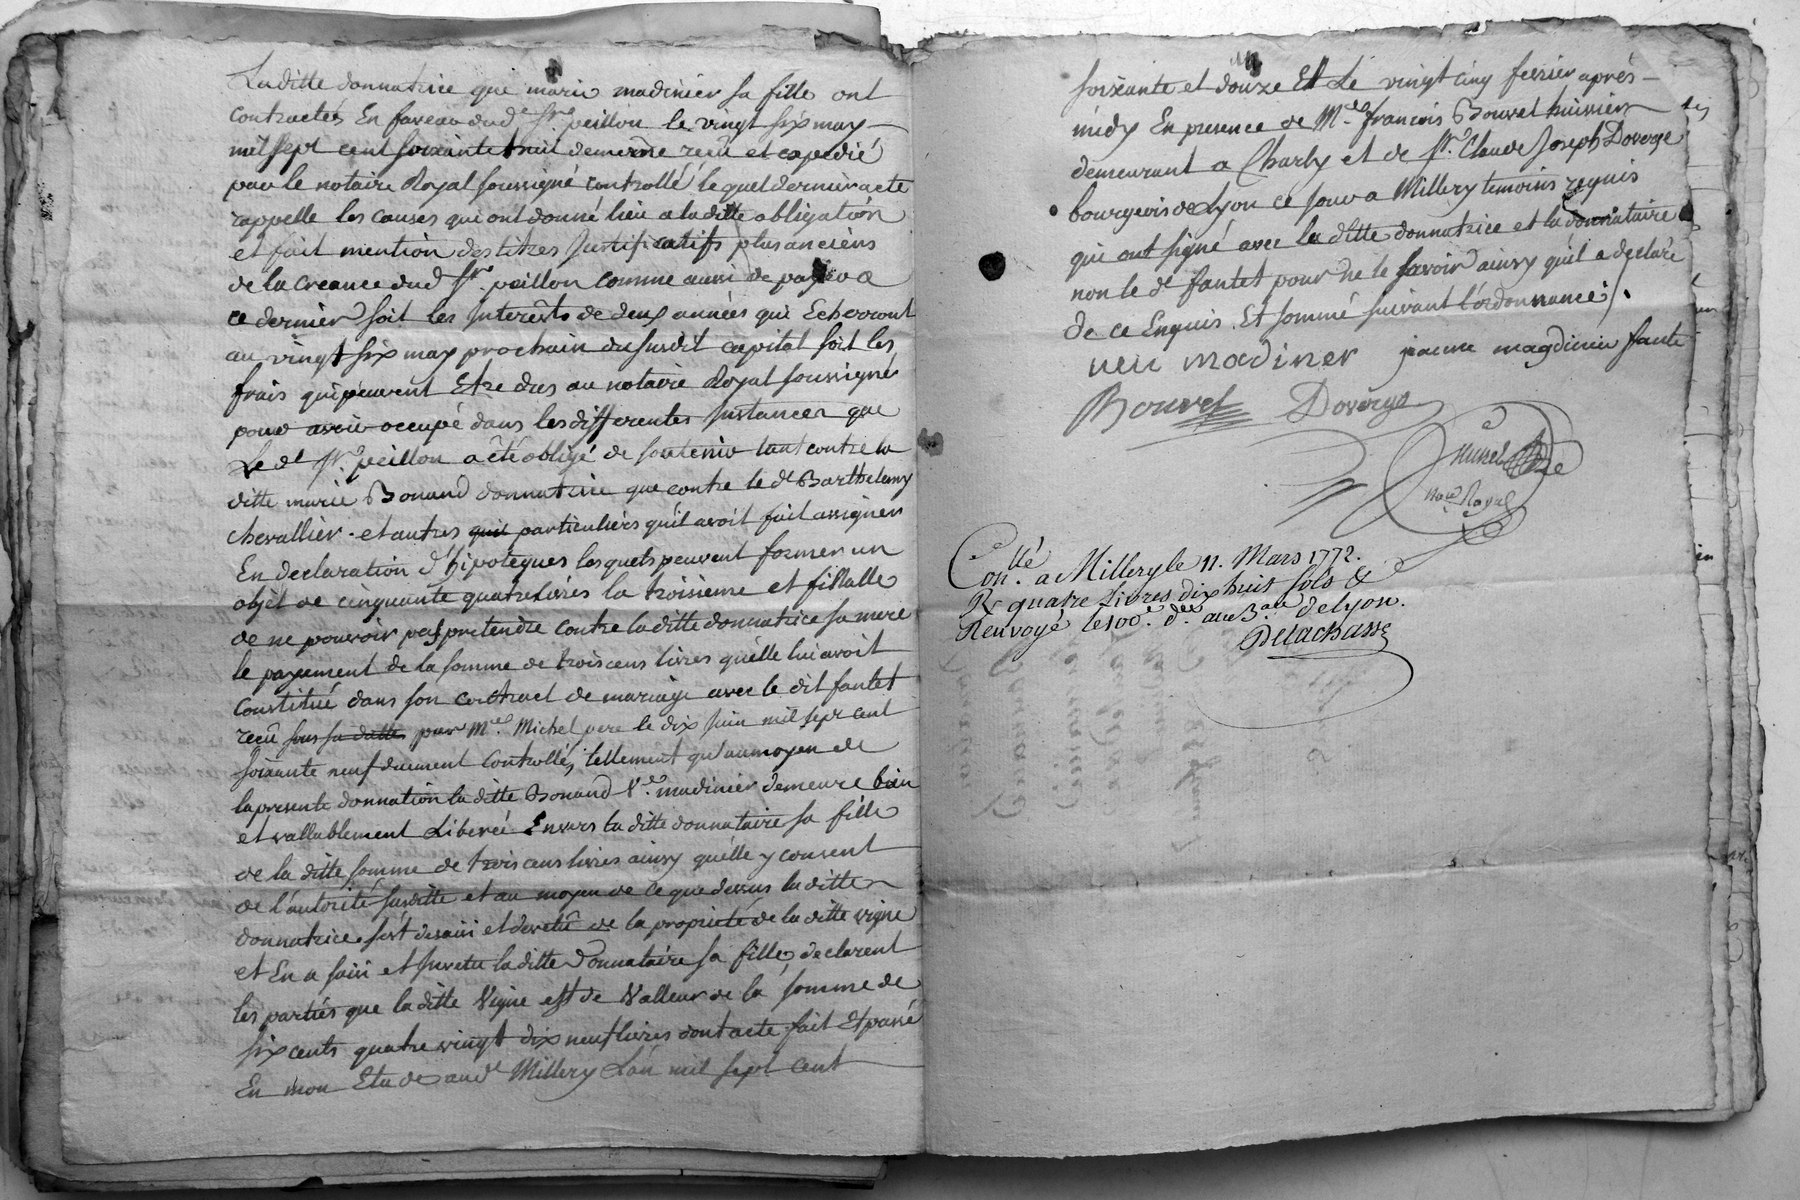 Laditte donnatrice que marie madinier sa fille ont
contractés En faveur dud.e Sr. peillon le vingt six may
mil sept cent soixante huit de meme reçu et expedié
par le notaire Royal soussigné controllé le quel dernier acte
rappelle les causes qui ont donné lieu a la ditte obligation
et fait mention des titres Justificatifs plus anciens
de la creance dud Sr. peillon comme aussi de payer a
ce dernier soit les Interêts de deux années qui Echerront
au vingt six may prochain du susdit capital soit les
frais qui peuvent Etre dus au notaire Royal soussigné
pour avoir occupé dans les differentes Instances que
Le dt Sr. peillon a été obligé de soutenir tant contre la
ditte marie Bonand donnatrice que contre le dt Barthelemy
chevallier et autres particuliers qu'il avoit fait assigner
En declaration d'hipoteques lesquels peuvent former un
objet de cinquante quatre livres la troisieme et fillalle
de ne pouvoir pas pretendre contre la ditte donnatrice sa mere
le payement de la somme de trois cens livres qu'elle lui avoit
Constitué dans son contract de mariage avec le dit fantet
reçu sous sa datte par Me. Michel pere le dix Juin mil sept cent
soixante neuf duement Controllé, tellement qu'au moyen de
la presente donnation la ditte Bonand Ve. madinier demeure bien
et vallablement Liberée Envers la ditte donnataire sa fille
de la ditte somme de trois cens livres ainsy qu'elle y consent
de l'autorité susditte et au moyen de ce que dessus la ditte
donnatrice s'est desaisi et devetû de la proprieté de la ditte vigne
et En a saisi et Invetu la ditte Donnataire sa fille, declarent
les parties que la ditte Vigne est de Valleur de la somme de
six cents quatre vingt dix neuf livres dont acte fait Et passé
En mon Etude aud.t Millery L'an mil sept cent
soixante et douze Et Le vingt cinq fevrier aprés
midy En presence de Me. françois Bouvet huissier
demeurant a Charly et de Sr. Claude Joseph Doverge
bourgeois de Lyon ce jour a Millery temoins requis
qui ont signé avec la ditte donnatrice et la donnataire
non le dt fantet pour ne le savoir ainsy qu'il a declaré
de ce Enquis Et sommé suivant l'ordonnance /.
madiner jeanne magdinier fante
Bouvet Doverge
Michel
Nore Royal
Conllé. a Millery le 11. Mars 1772.
R quatre Livres dix huit sols &
Renvoyé le 100.e d.er au B.au de Lyon.
Delachasse